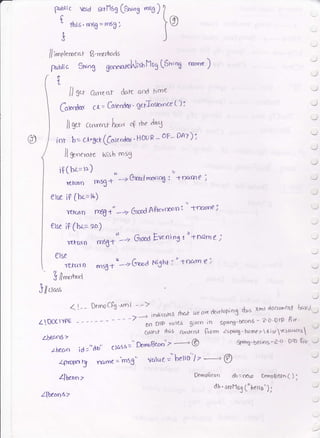 public void setMsg (String msg)
{
this.msg = msg;
}
// implement B-methods
public String generateWishMsg (String name)
{
// get current date and time
Calendar cl = Calendar.getInstance();
// get current hour of the day
int h = cl.get(Calendar.HOUR_OF_DAY);
// generate wish msg
if(h<=12)
return msg + "--> Good morning : " + name ;
else if (h<=16)
return msg + "--> Good Afternoon : " + name ;
else if (h<=20)
return msg + "--> Good Evening : " + name ;
else
return msg + "--> Good Night : " + name ;
} // method
} // class
<!-- DemoCfg.xml -->
<!DOCTYPE - - - - - - - - - > → indicates that we are developing this xml document based
on DTD rules given in spring-beans-2.0.DTD file.
<beans>
<bean id="db" class="DemoBean">
<property name="msg" value="hello"/>
</bean>
</beans>
DemoBean db = new DemoBean();
db.setMsg("hello");